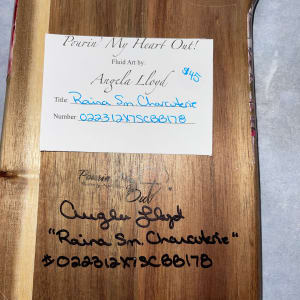 Pourin' My Heart Out!
Fluid Art by:
$45
Angela Lloyd
Title Raina Sm. Charcuterie
Number 022312X7SCBB178
Pourin' My
Out
Angela Lloyd
"Raina Sm Charcuterie"
#022312X7SCBB178